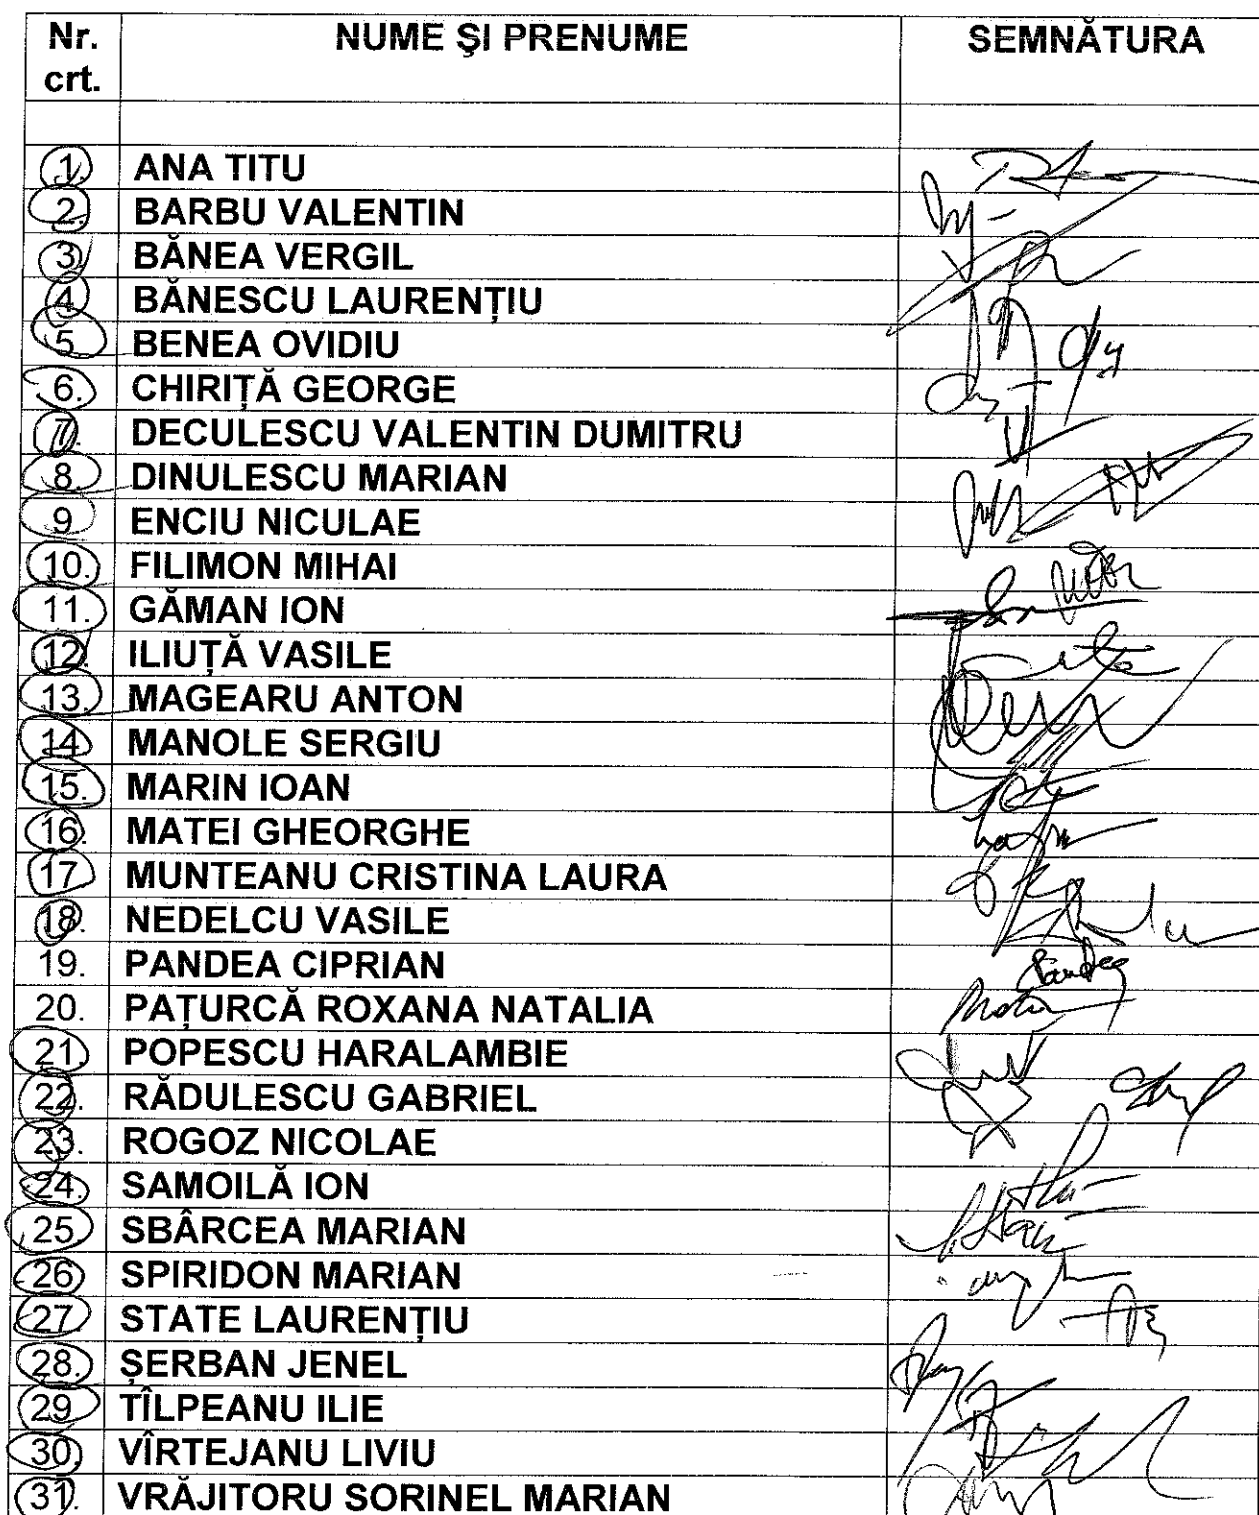 Nr. crt. NUME ŞI PRENUME SEMNĂTURA
1. ANA TITU
2. BARBU VALENTIN
3. BĂNEA VERGIL
4. BĂNESCU LAURENŢIU
5. BENEA OVIDIU
6. CHIRIŢĂ GEORGE
7. DECULESCU VALENTIN DUMITRU
8. DINULESCU MARIAN
9. ENCIU NICULAE
10. FILIMON MIHAI
11. GĂMAN ION
12. ILIUŢĂ VASILE
13. MAGEARU ANTON
14. MANOLE SERGIU
15. MARIN IOAN
16. MATEI GHEORGHE
17. MUNTEANU CRISTINA LAURA
18. NEDELCU VASILE
19. PANDEA CIPRIAN Pandea
20. PAŢURCĂ ROXANA NATALIA
21. POPESCU HARALAMBIE
22. RĂDULESCU GABRIEL
23. ROGOZ NICOLAE
24. SAMOILĂ ION
25. SBÂRCEA MARIAN
26. SPIRIDON MARIAN
27. STATE LAURENŢIU
28. ŞERBAN JENEL
29. TÎLPEANU ILIE
30. VÎRTEJANU LIVIU
31. VRĂJITORU SORINEL MARIAN